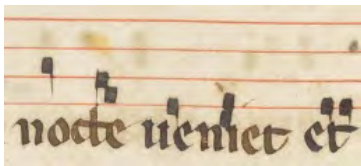 nocte ueniet et